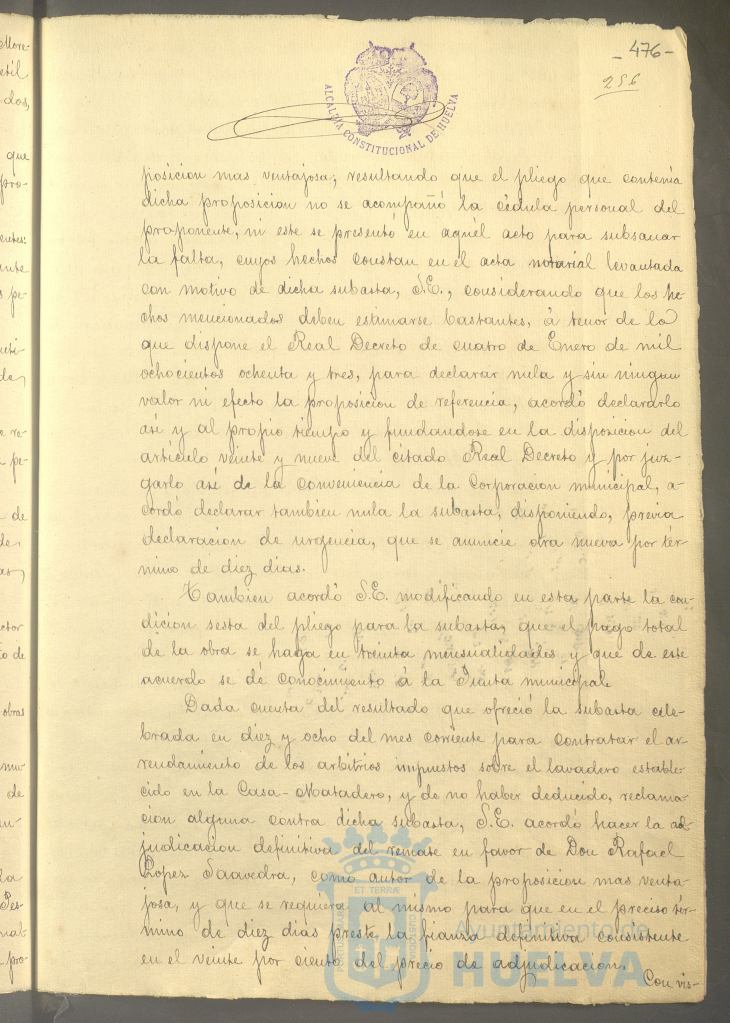 -476-
256
ALCALDIA CONSTITUCIONAL DE HUELVA
posicion mas ventajosa; resultando que el pliego que contenia
dicha proposicion no se acompañó la cédula personal del
proponente, ni este se presentó en aquél acto para subsanar
la falta, cuyos hechos constan en el acta notarial levantada
con motivo de dicha subasta, S.E., considerando que los he-
chos mencionados deben estimarse bastantes, á tenor de lo
que dispone el Real Decreto de cuatro de Enero de mil
ochocientos ochenta y tres, para declarar nula y sin ningun
valor ni efecto la proposicion de referencia, acordó declararlo
asi y al propio tiempo y fundandose en la disposicion del
artículo veinte y nueve del citado Real Decreto y por juz-
garlo asi de la conveniencia de la Corporacion municipal, a-
cordó declarar tambien nula la subasta, disponiendo, previa
declaracion de urgencia, que se anuncie otra nueva por tér-
mino de diez dias.
Tambien acordó S.E. modificando en esta parte la con-
dicion sesta del pliego para la subasta, que el pago total
de la obra se haga en treinta mensualidades y que de este
acuerdo se dé conocimiento á la Junta municipal.
Dada cuenta del resultado que ofreció la subasta cele-
brada en diez y ocho del mes corriente para contratar el ar-
rendamiento de los arbitrios impuestos sobre el lavadero estable-
cido en la Casa-Matadero, y de no haber deducido, reclama-
cion alguna contra dicha subasta, S.E. acordó hacer la ad-
judicacion definitiva del remate en favor de Don Rafael
Lopez Saavedra, como autor de la proposicion mas venta-
josa, y que se requiera al mismo para que en el preciso tér-
mino de diez dias preste la fianza definitiva consistente
en el veinte por ciento del precio de adjudicacion.
Con vis-
Ayuntamiento de
HUELVA